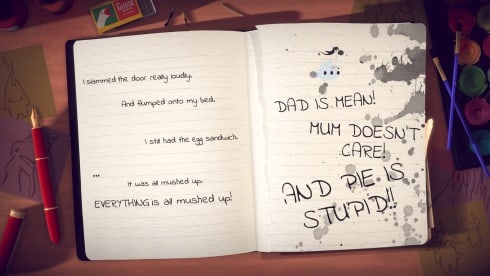 I slammed the door really loudly.
And flumped onto my bed.
I still had the egg sandwich.
...
It was all mushed up.
EVERYTHING is all mushed up!
DAD IS MEAN!
MUM DOESN'T
CARE!
AND PIE IS
STUPID!!